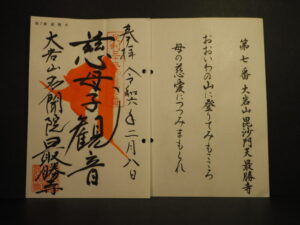 第七番 大岩山 毘沙門天 最勝寺
おおいわの山に登りてみもこころ
母の慈愛につつみまもられ
奉拝 令和六年二月八日
慈母子観音
大岩山多聞院最勝寺